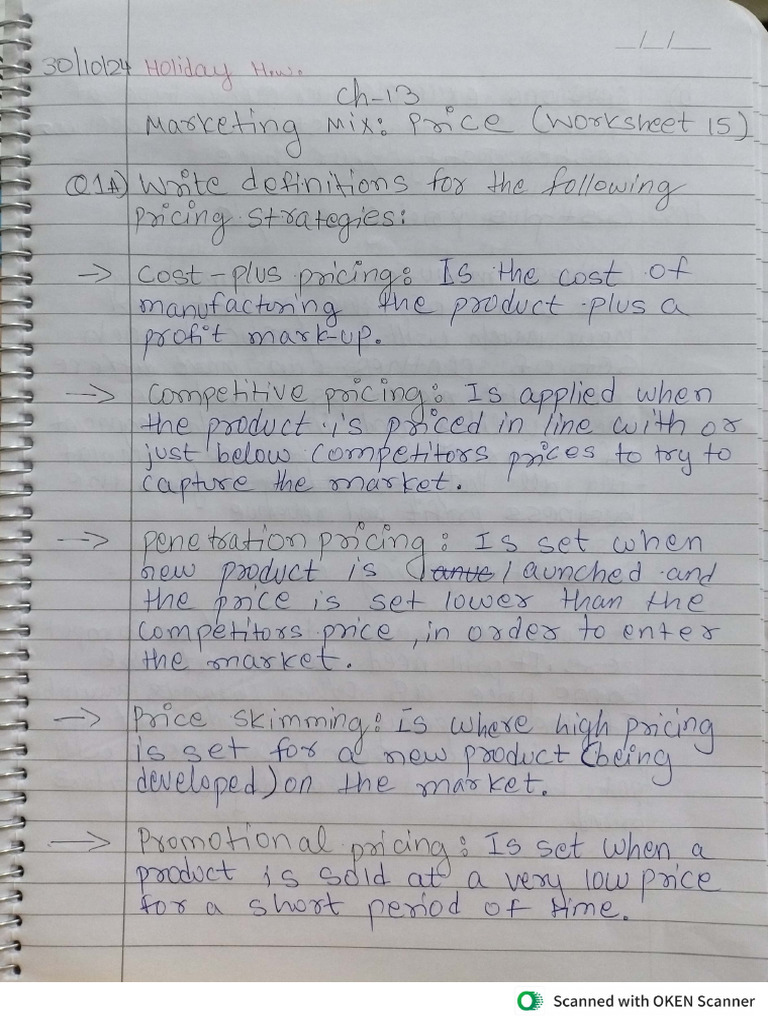 _/_/__
30/10/24 Holiday H.w.
Ch-13
Marketing Mix: Price (Worksheet 15)
Q1A) Write definitions for the following
pricing strategies:
-> Cost-plus pricing: Is the cost of
manufacturing the product plus a
profit mark-up.
-> Competitive pricing: Is applied when
the product is priced in line with or
just below competitors prices to try to
capture the market.
-> Penetration pricing: Is set when
new product is launched and
the price is set lower than the
competitors price, in order to enter
the market.
-> Price skimming: Is where high pricing
is set for a new product (being
developed) on the market.
-> Promotional pricing: Is set when a
product is sold at a very low price
for a short period of time.
Scanned with OKEN Scanner